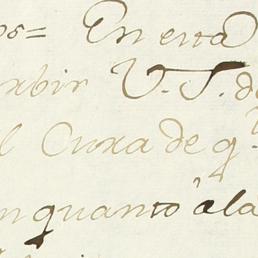 os= En esta
rbir V.S. de
l Cura de q.
n quanto â la